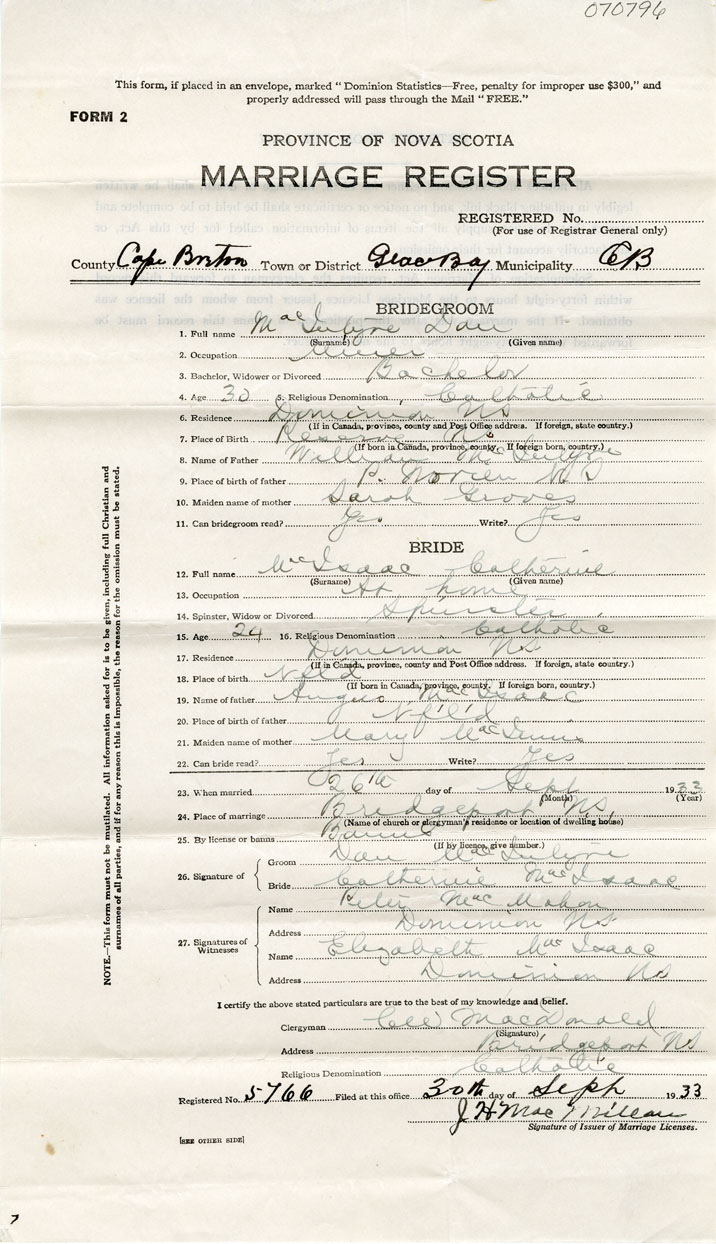 070796
This form, if placed in an envelope, marked "Dominion Statistics—Free, penalty for improper use $300," and
properly addressed will pass through the Mail "FREE."
FORM 2
PROVINCE OF NOVA SCOTIA
MARRIAGE REGISTER
REGISTERED No.
(For use of Registrar General only)
County Cape Breton Town or District Glace Bay Municipality CB
BRIDEGROOM
1. Full name MacIntyre Dan
(Surname) (Given name)
2. Occupation Miner
3. Bachelor, Widower or Divorced Bachelor
4. Age 30 5. Religious Denomination Catholic
6. Residence Dominion NS
(If in Canada, province, county and Post Office address. If foreign, state country.)
7. Place of Birth Reserve NS
(If born in Canada, province, county. If foreign born, country.)
8. Name of Father William McIntyre
9. Place of birth of father P. Morien NS
10. Maiden name of mother Sarah Groves
11. Can bridegroom read? Yes Write? Yes
BRIDE
12. Full name McIsaac Catherine
(Surname) (Given name)
13. Occupation At home
14. Spinster, Widow or Divorced Spinster
15. Age 24 16. Religious Denomination Catholic
17. Residence Dominion NS
(If in Canada, province, county and Post Office address. If foreign, state country.)
18. Place of birth Nfld
(If born in Canada, province, county. If foreign born, country.)
19. Name of father Angus MacIsaac
20. Place of birth of father Nfld
21. Maiden name of mother Mary
22. Can bride read? Yes Write? Yes
23. When married 26th day of Sept 1933
(Month) (Year)
24. Place of marriage Bridgeport NS,
(Name of church or clergyman's residence or location of dwelling house)
25. By license or banns Banns
(If by licence, give number.)
26. Signature of
Groom Dan MacIntyre
Bride Catherine MacIsaac
27. Signatures of Witnesses
Name Peter MacMahon
Address Dominion NS
Name Elizabeth MacIsaac
Address Dominion NS
I certify the above stated particulars are true to the best of my knowledge and belief.
Clergyman MacDonald
(Signature)
Address Bridgeport NS
Religious Denomination Catholic
Registered No. 5766 Filed at this office 30th day of Sept 1933
J H MacMillan
Signature of Issuer of Marriage Licenses.
[SEE OTHER SIDE]
NOTE.—This form must not be mutilated. All information asked for is to be given, including full Christian and
surnames of all parties, and if for any reason this is impossible, the reason for the omission must be stated.
7